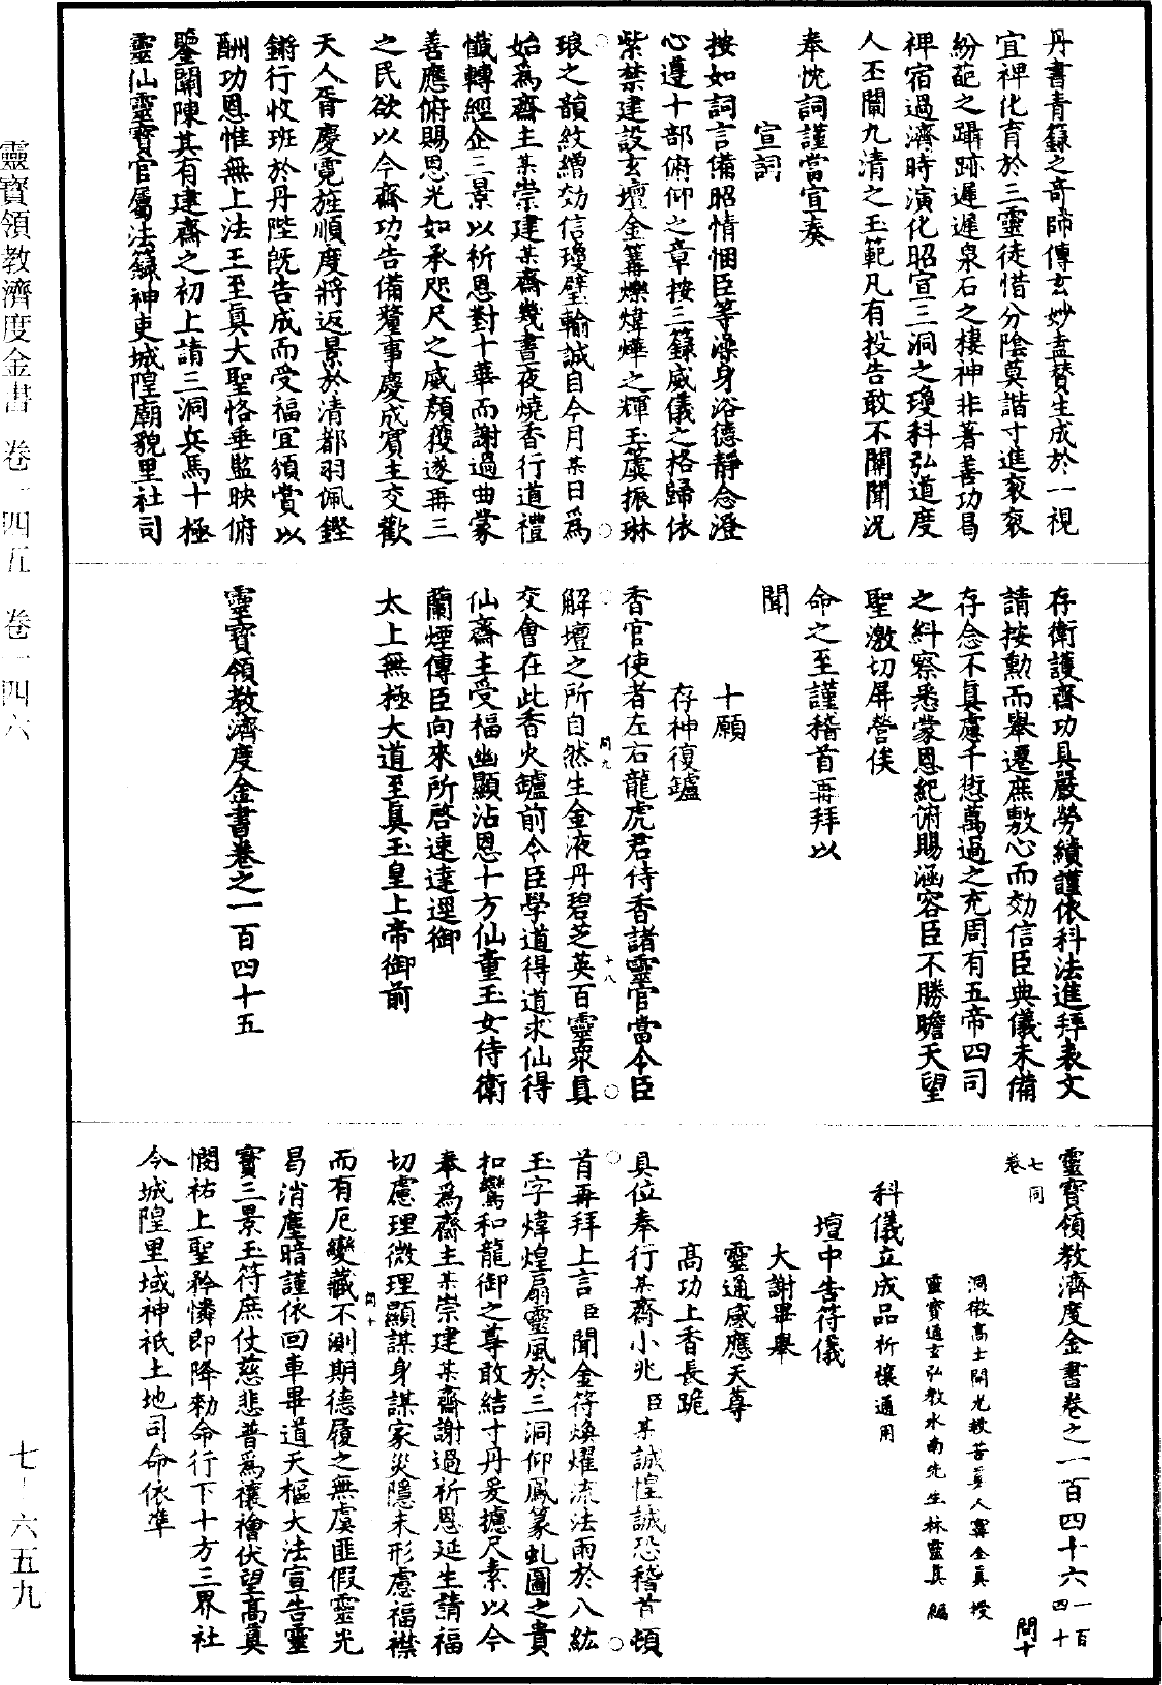 丹書青籙之奇師傳玄妙盡賛生成於一視
宜禆化育於三靈徒惜分陰莫諧寸進衮衮
紛葩之躡跡遲遲泉石之棲神非著善功曷
禆宿過濟時演化昭宣三洞之瓊科弘道度
人丕闡九清之玉範凡有投告敢不關聞況
奉忱詞謹當宣奏
宣詞
按如詞言備昭情悃臣等澡身浴德靜念澄
心遵十部俯仰之章按三籙威儀之格歸依
紫禁建設玄壇金籌爍煒燁之輝玉簴振琳
琅之韻紋繒効信瓊璧輸誠自今月某日爲
始爲齋主某崇建某齋幾晝夜燒香行道禮
懺轉經企三景以祈恩對十華而謝過曲蒙
善應俯賜恩光如承咫尺之威顏獲遂再三
之民欲以今齋功告備釐事慶成賓主交歡
天人胥慶霓旌順度將返景於清都羽佩鏗
鏘行收班於丹陛旣告成而受福冝頒賞以
酬功恩惟無上法王至真大聖恪垂監映俯
鑒關陳其有建齋之初上請三洞兵馬十極
靈仙靈寳官屬法籙神吏城隍廟貌里社司
存衛護齋功具嚴勞績謹依科法進拜表文
請按勳而舉遷庶敷心而効信臣典儀未備
存念不真慮千愆萬過之充周有五帝四司
之糾察悉蒙恩紀俯賜涵容臣不勝瞻天望
聖激切屏營俟
命之至謹稽首再拜以
聞
十願
存神復鑪
香官使者左右龍虎君侍香諸靈官當令臣
解壇之所自然生金液丹碧芝英百靈衆真
交會在此香火鑪前令臣學道得道求仙得
仙齋主受福幽顯沾恩十方仙童玉女侍衛
蘭煙傳臣向來所啓速達逕御
太上無極大道至真玉皇上帝御前
靈寳領教濟度金書卷之一百四十五
靈寳領教濟度金書卷之一百四十六 一百四十 問十
七同卷
洞微高士開光救苦真人甯全真授
靈寳通玄弘教水南先生林靈真編
科儀立成品 祈禳通用
壇中告符儀
大謝畢舉
靈通感應天尊
高功上香長跪
具位奉行某齋小兆臣某誠惶誠恐稽首頓
首再拜上言臣聞金符煥燿流法雨於八紘
玉字煒煌扇靈風於三洞仰鳳篆虬圖之貴
扣鸞和龍御之尊敢結寸丹爰攄尺素以今
奉爲齋主某崇建某齋謝過祈恩延生請福
切慮理微理顯謀身謀家災隱未形慮福襟
而有厄變藏不測期德履之無虞匪假靈光
曷消塵暗謹依回車畢道天樞大法宣告靈
寳三景玉符庶仗慈悲普爲禳禬伏望高真
憫祐上聖矜憐即降勑命行下十方三界社
令城隍里域神祇土地司命依準
問九
十八
問十
靈寶領教濟度金書 卷一四五 卷一四六
七-六五九